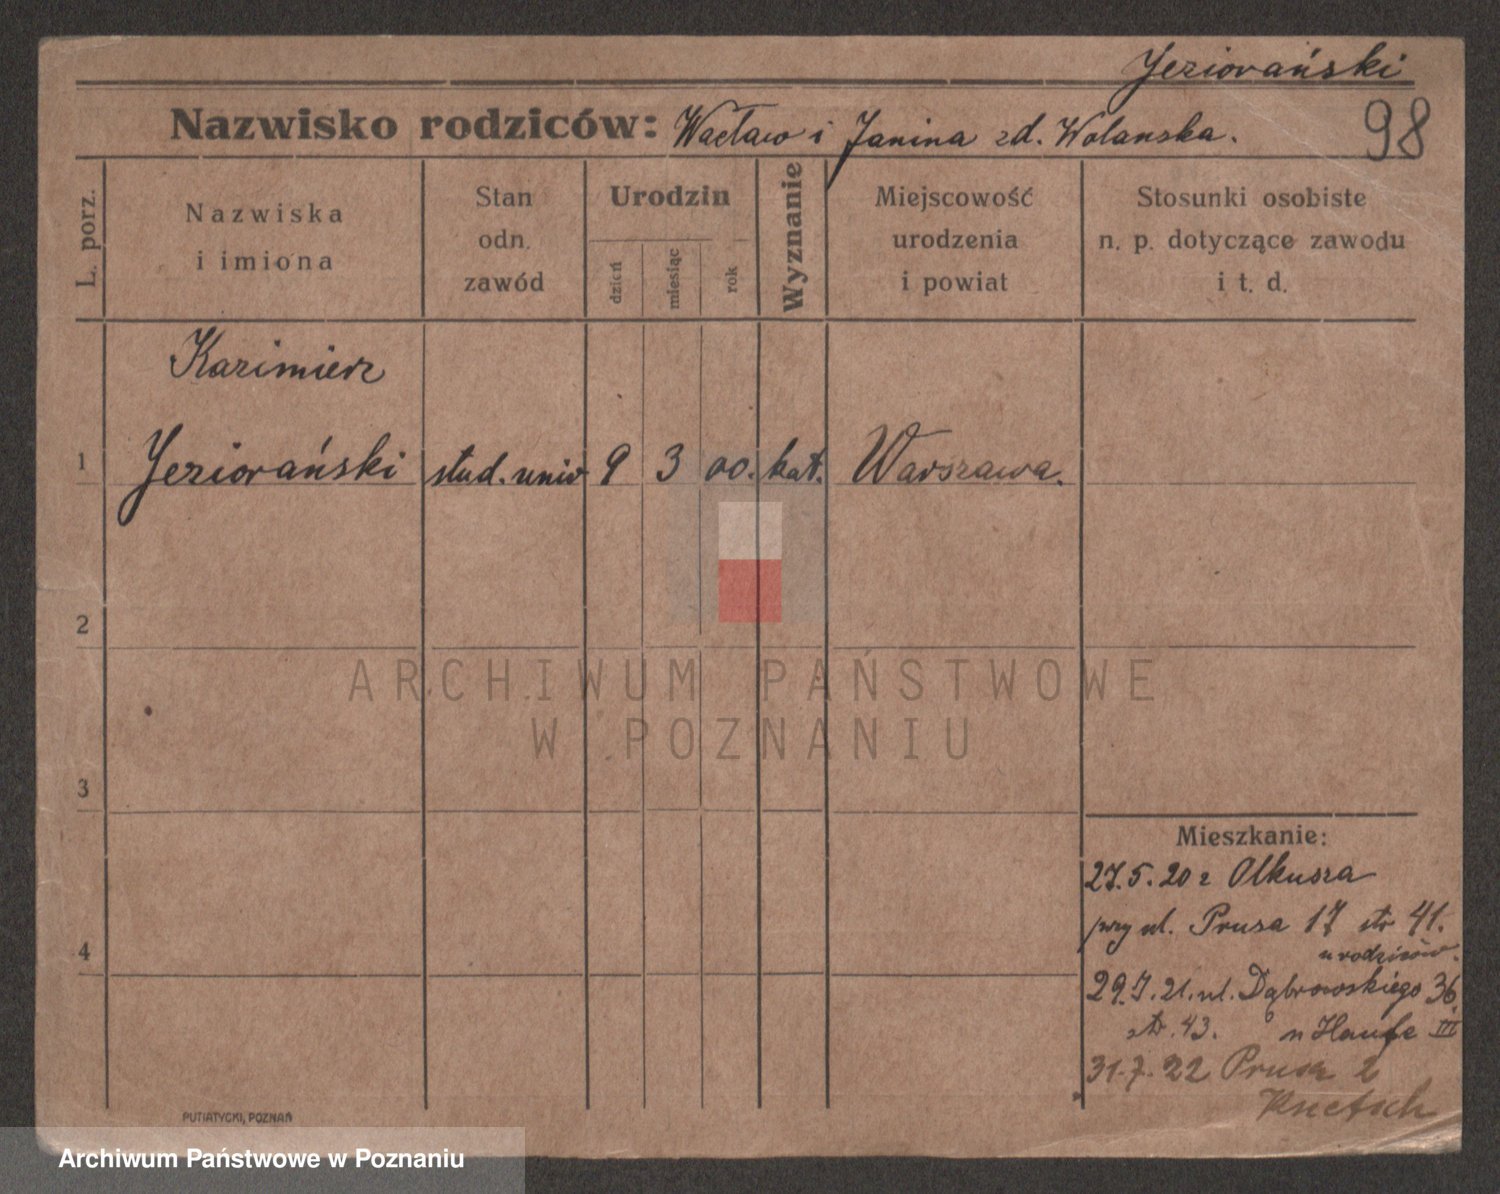 Jeziorański
Nazwisko rodziców: Wacław i Janina zd. Wolanska.
98
L. porz.
Nazwiska
i imiona
Stan
odn.
zawód
Urodzin
dzień
miesiąc
rok
Wyznanie
Miejscowość
urodzenia
i powiat
Stosunki osobiste
n. p. dotyczące zawodu
i t. d.
Kazimierz
1 Jeziorański stud. univ 9 3 00. kat. Warszawa.
2
ARCHIWUM PAŃSTWOWE
W POZNANIU
3
Mieszkanie:
27.5.20 z Olkusza
przy ul. Prusa 17 str 41.
u rodziców.
4
29.7.21. ul. Dąbrowskiego 36
str. 43. u Haufe III
31.7.22 Prusa 2
PUTIATYCKI, POZNAŃ
Archiwum Państwowe w Poznaniu